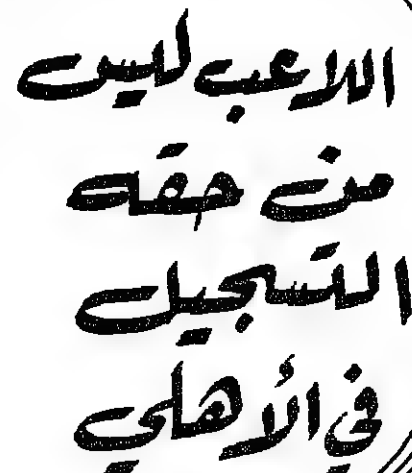 اللاعب ليس
من حقه
التسجيل
في الأهلي